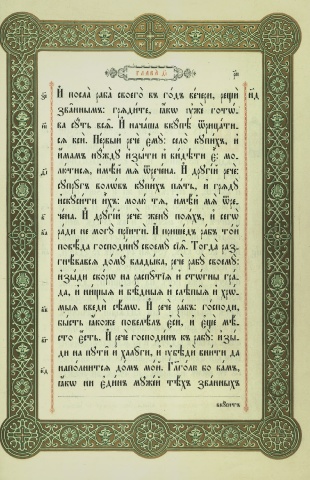 И҆ посла̀ раба̀ своего̀ въ го́дъ ве́чери, рещѝ
зва̑ннымъ: грѧди́те, ꙗ҆́кѡ ᲂу҆жѐ гото̑-
ва сꙋ́ть всѧ̑. И҆ нача́ша вкꙋ́пѣ ѿрица́ти-
сѧ всѝ. Пе́рвый речѐ є҆мꙋ̀: село̀ кꙋпи́хъ, и҆
и҆́мамъ нꙋ́ждꙋ и҆зы́ти и҆ ви́дѣти є҆̀: мо-
лю́тисѧ, и҆мѣ́й мѧ̀ ѿрече́на. И҆ дрꙋгі́й речѐ:
сꙋпрꙋ̑гъ волѡ́въ кꙋпи́хъ пѧ́ть, и҆ грѧдꙋ̀
и҆скꙋси́ти и҆́хъ: молю́ тѧ, и҆мѣ́й мѧ̀ ѿре-
че́на. И҆ дрꙋгі́й речѐ: женꙋ̀ поѧ́хъ, и҆ сегѡ̀
ра́ди не могꙋ̀ прїитѝ. И҆ прише́дъ ра́бъ то́й
повѣ́да господи́нꙋ своемꙋ̀ сїѧ̑. Тогда̀ раз-
гнѣ́вавсѧ до́мꙋ влады́ка, речѐ рабꙋ̀ своемꙋ̀:
и҆зы́ди ско́рѡ на распꙋ̑тїѧ и҆ стѡ́гны гра́-
да, и҆ ни́щыѧ и҆ бѣ̑дныѧ и҆ слѣпы̑ѧ и҆ хрѡ-
мы̑ѧ введѝ сѣ́мѡ. И҆ речѐ ра́бъ: го́споди,
бы́сть ꙗ҆́коже повелѣ́лъ є҆сѝ, и҆ є҆щѐ мѣ́-
сто є҆́сть. И҆ речѐ господи́нъ къ рабꙋ̀: и҆зы́-
ди на пꙋти̑ и҆ халꙋ̑ги, и҆ ᲂу҆бѣдѝ вни́ти да
напо́лнитсѧ до́мъ мо́й. Глаго́лю бо ва́мъ,
ꙗ҆́кѡ ни є҆ди́нъ мꙋже́й тѣ́хъ зва́нныхъ
вкꙋ́ситъ